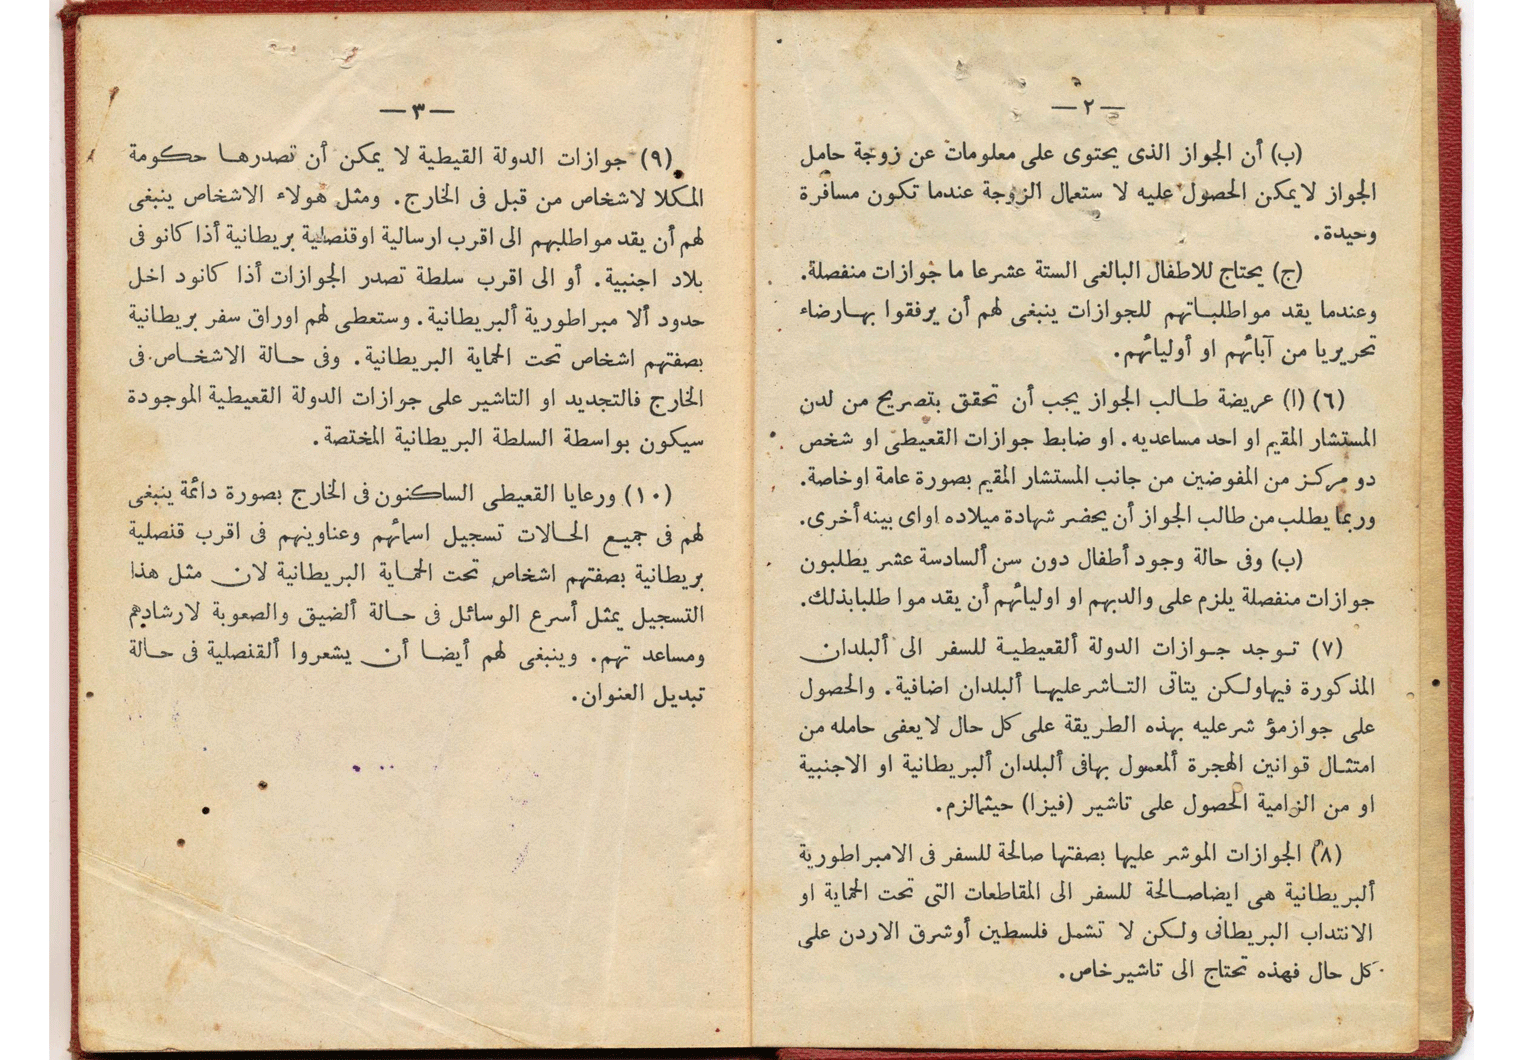 — ٢ —
(ب) أن الجواز الذى يحتوى على معلومات عن زوجة حامل
الجواز لايمكن الحصول عليه لا ستعمال الزوجة عندما تكون مسافرة
وحيدة.
(ج) يحتاج للاطفال البالغى الستة عشرعا ما جوازات منفصلة.
وعندما يقد مواطلباتهم للجوازات ينبغى لهم أن يرفقوا بهارضاء
تحريريا من آبائهم او أوليائهم.
(٦) (ا) عريضة طالب الجواز يجب أن تحقق بتصريح من لدن
المستشار المقيم او احد مساعديه. او ضابط جوازات القعيطى او شخص
دو مركز من المفوضين من جانب المستشار المقيم بصورة عامة اوخاصة.
وربما يطلب من طالب الجواز أن يحضر شهادة ميلاده اواى بينه أخرى.
(ب) وفى حالة وجود أطفال دون سن ألسادسة عشر يطلبون
جوازات منفصلة يلزم على والديهم او اوليائهم أن يقد موا طلبابذلك.
(٧) توجد جوازات الدولة ألقعيطية للسفر الى ألبلدان
المذكورة فيهاولكن يتاتى التاشرعليها ألبلدان اضافية. والحصول
على جوازمؤ شرعليه بهذه الطريقة على كل حال لايعفى حامله من
امتثال قوانين الهجرة ألمعمول بهافى ألبلدان ألبريطانية او الاجنبية
او من الزامية الحصول على تاشير (فيزا) حيثمالزم.
(٨) الجوازات الموشر عليها بصفتها صالحة للسفر فى الامبراطورية
ألبريطانية هى ايضاصالحة للسفر الى المقاطعات التى تحت الحماية او
الانتداب البريطانى ولكن لا تشمل فلسطين أوشرق الاردن على
كل حال فهذه تحتاج الى تاشيرخاص.
— ٣ —
(٩) جوازات الدولة القيطية لا يمكن أن تصدرها حكومة
المكلا لاشخاص من قبل فى الخارج. ومثل هولاء الاشخاص ينبغى
لهم أن يقد مواطلبهم الى اقرب ارسالية اوقنصلية بريطانية أذا كانو فى
بلاد اجنبية. أو الى اقرب سلطة تصدر الجوازات أذا كانود اخل
حدود ألا مبراطورية ألبريطانية. وستعطى لهم اوراق سفر بريطانية
بصفتهم اشخاص تحت الحماية البريطانية. وفى حالة الاشخاص فى
الخارج فالتجديد او التاشير على جوازات الدولة القعيطية الموجودة
سيكون بواسطة السلطة البريطانية المختصة.
(١٠) ورعايا القعيطى الساكنون فى الخارج بصورة دائمة ينبغى
لهم فى جميع الحالات تسجيل اسمائهم وعناوينهم فى اقرب قنصلية
بريطانية بصفتهم اشخاص تحت الحماية البريطانية لان مثل هذا
التسجيل يمثل أسرع الوسائل فى حالة ألضيق والصعوبة لارشادهم
ومساعد تهم. وينبغى لهم أيضا أن يشعروا ألقنصلية فى حالة
تبديل العنوان.